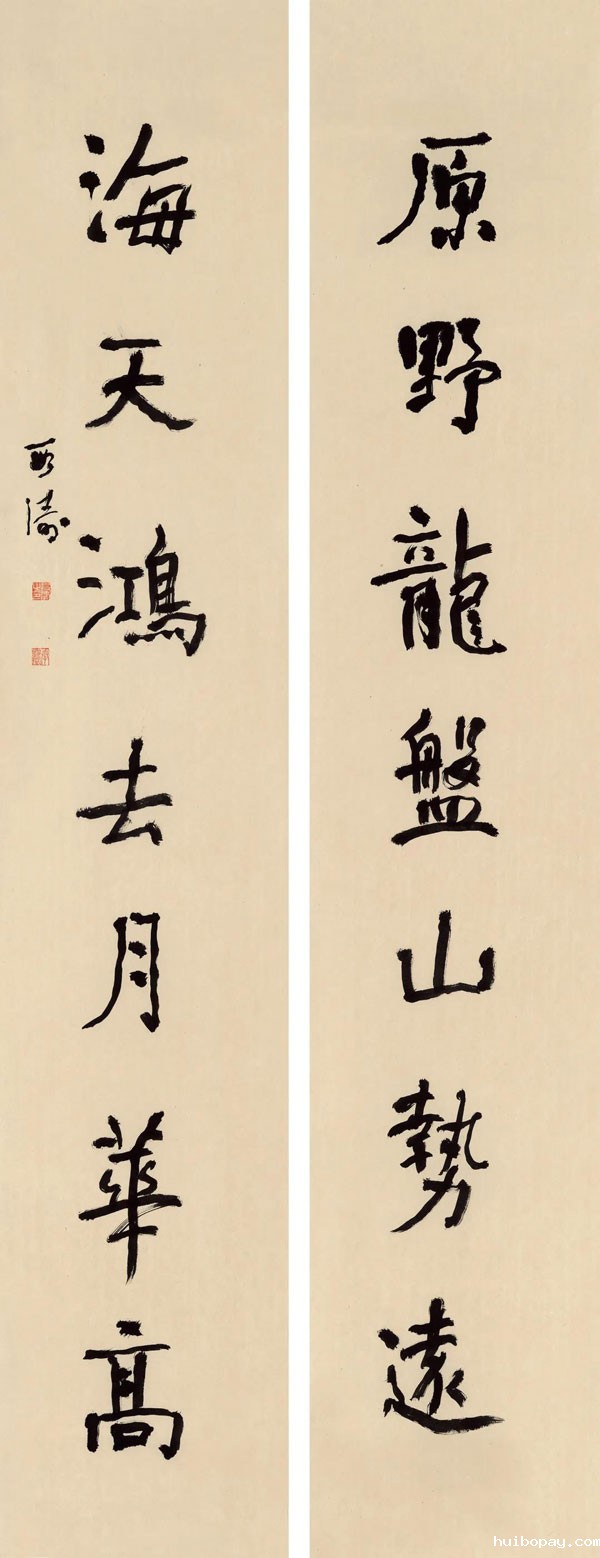 原野龍盤山勢遠
海天鴻去月華高
huibopay.com